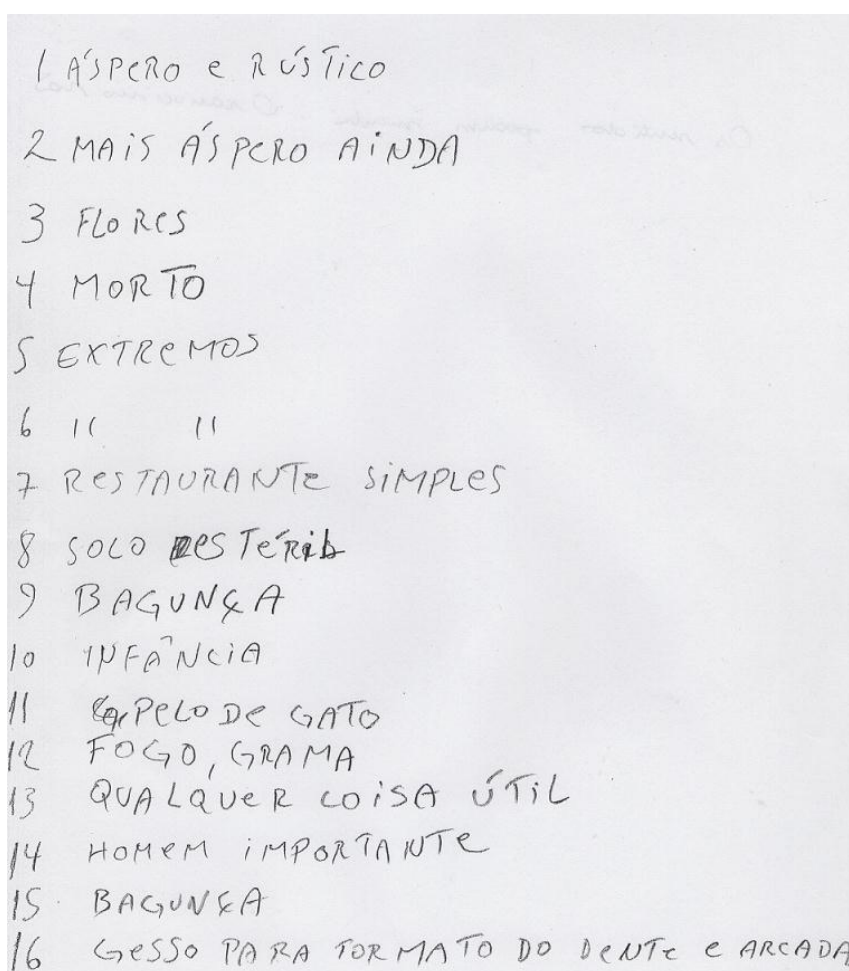 1 ÁSPERO e RÚSTICO
2 MAIS ÁSPERO AINDA
3 FLORES
4 MORTO
5 EXTREMOS
6 " "
7 RESTAURANTE SIMPLES
8 SOLO
9 BAGUNÇA
10 INFÂNCIA
11 PELO DE GATO
12 FOGO, GRAMA
13 QUALQUER COISA ÚTIL
14 HOMEM IMPORTANTE
15 BAGUNÇA
16 GESSO PARA FORMATO DO DENTE e ARCADA